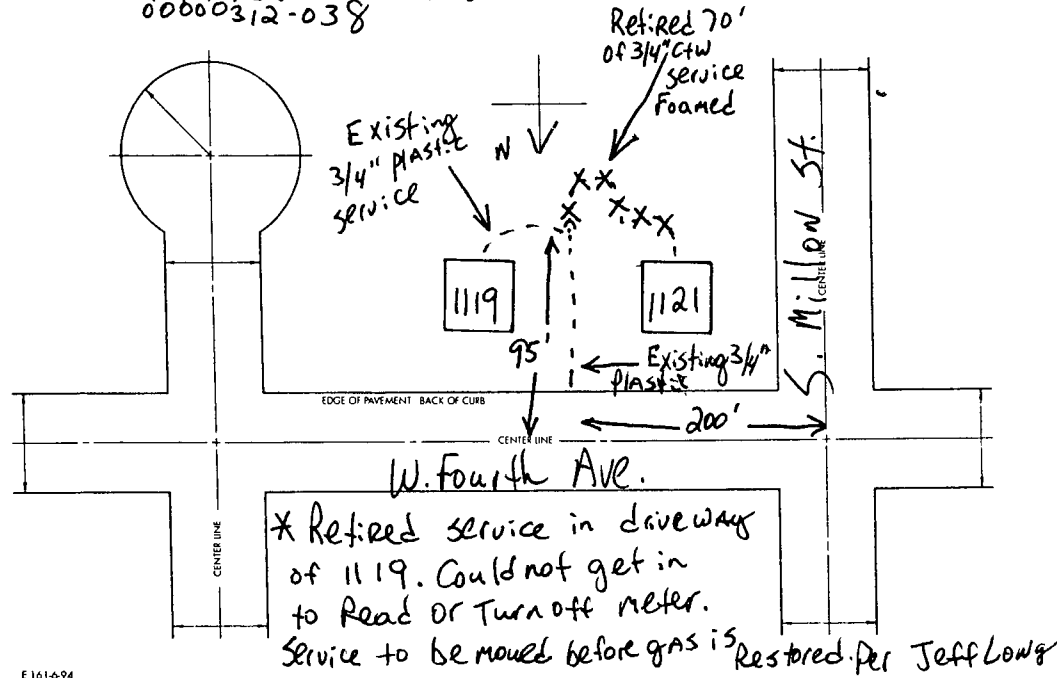 00000312-038
Retired 70'
of 3/4" CTW
service
Foamed
Existing
3/4" plastic
service
N
S. Millon St.
CENTER LINE
1119
1121
95'
Existing 3/4"
plastic
EDGE OF PAVEMENT BACK OF CURB
200'
CENTER LINE
W. Fourth Ave.
CENTER LINE
* Retired service in driveway
of 1119. Could not get in
to Read or Turn off meter.
Service to be moved before gas is Restored. Per Jeff Long
F 161-6-94